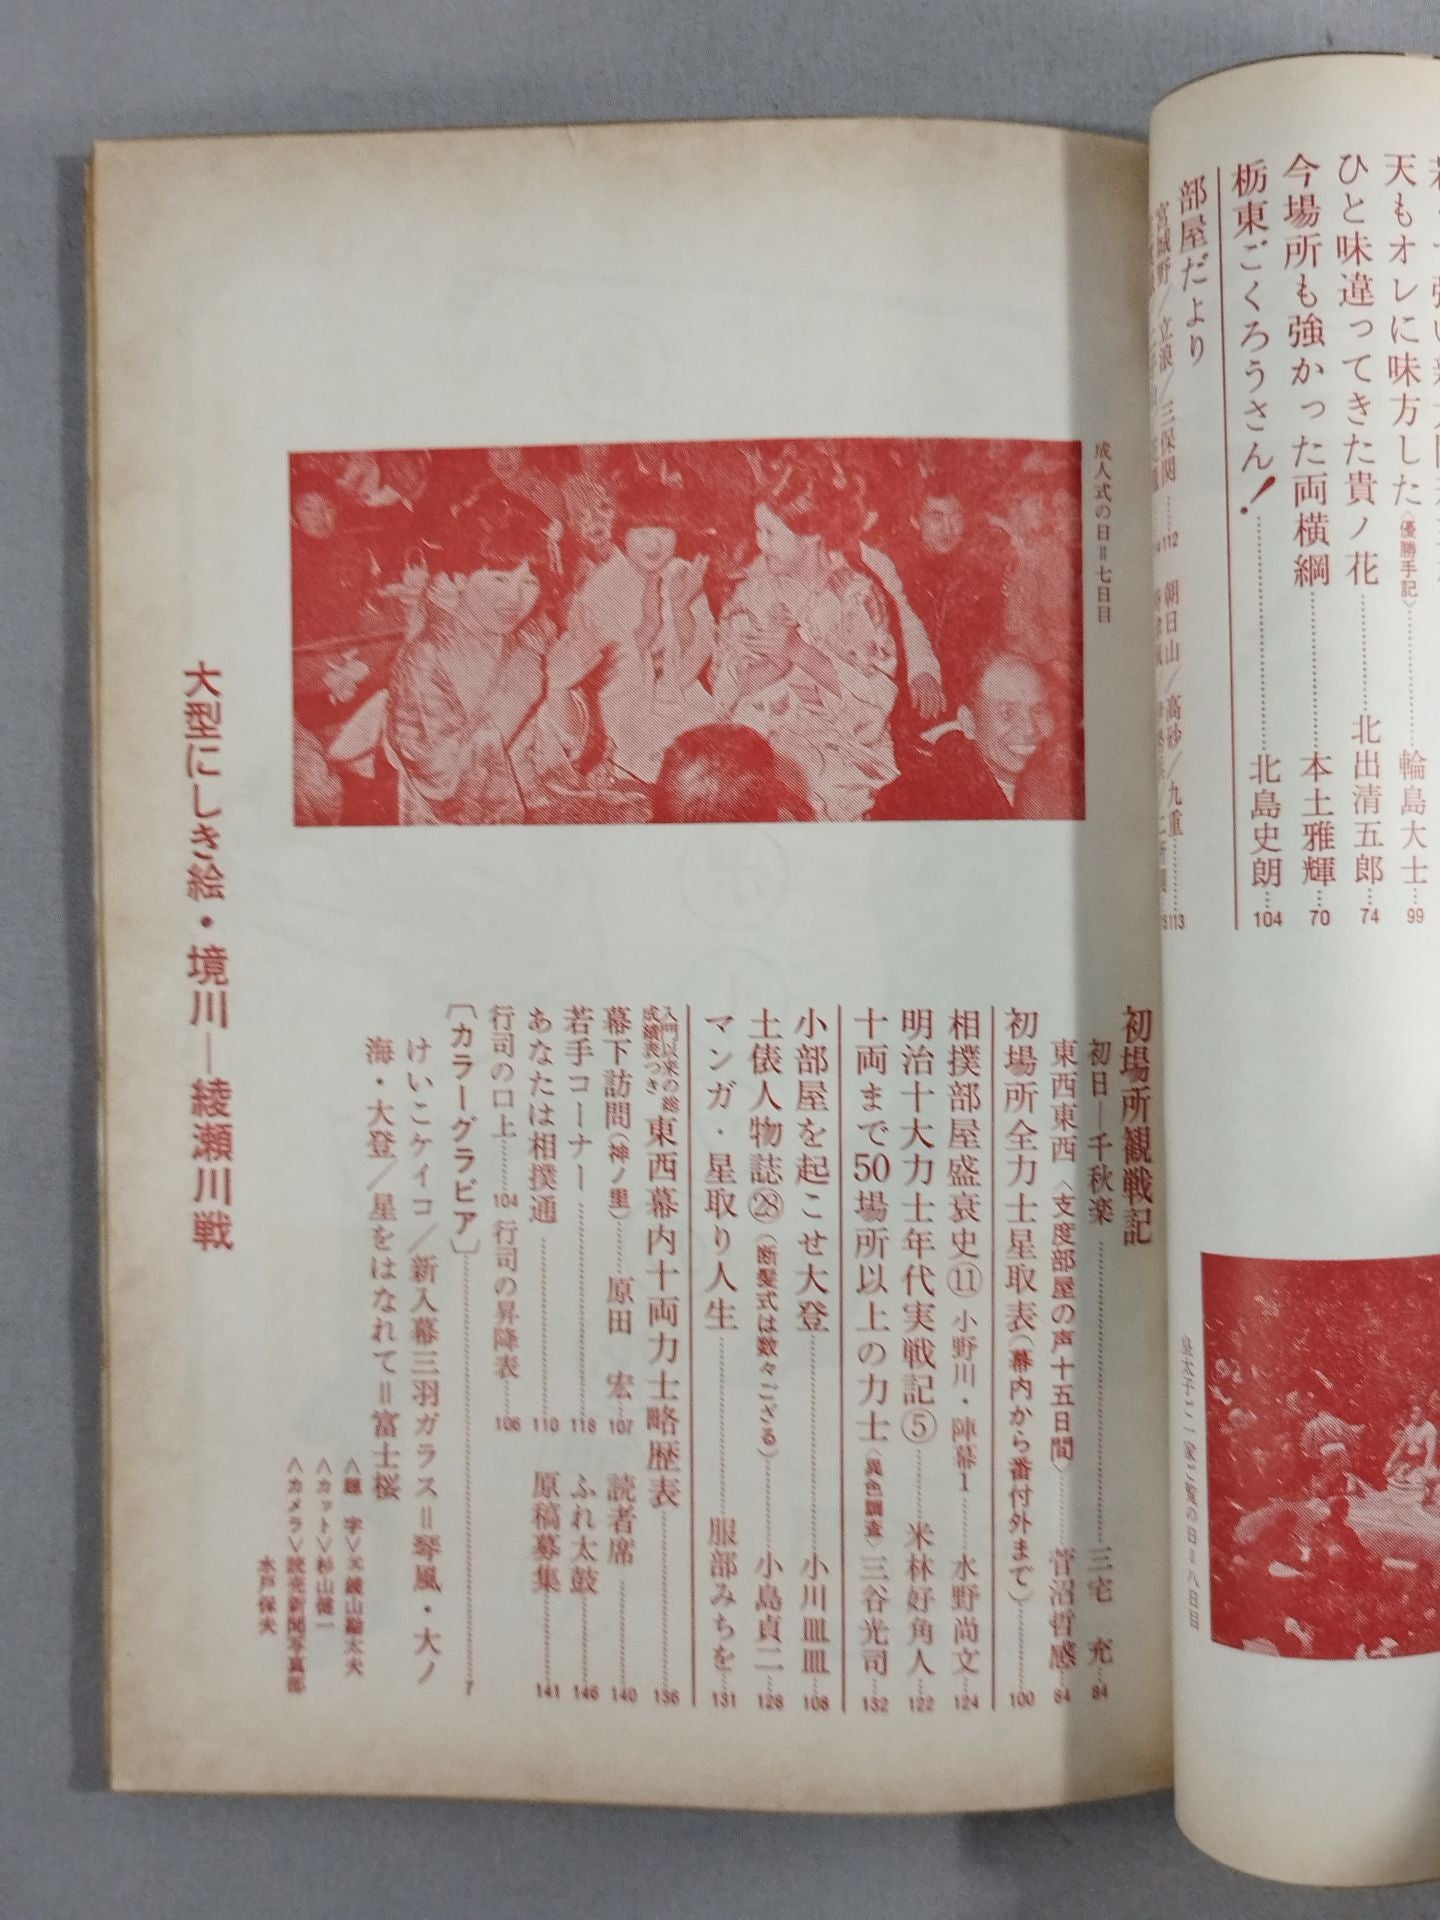 天もオレに味方した〈優勝手記〉…輪島大士…99
ひと味違ってきた貴ノ花…北出清五郎…74
今場所も強かった両横綱…本土雅輝…70
栃東ごくろうさん!…北島史朗…104
部屋だより
宮城野/立浪/三保関…112 朝日山/高砂/九重…113
成人式の日=七日目
初場所観戦記
初日—千秋楽…三宅 充…84
東西東西〈支度部屋の声十五日間〉…菅沼哲感…84
初場所全力士星取表(幕内から番付外まで)…100
相撲部屋盛衰史⑪ 小野川・陣幕1…水野尚文…124
明治十大力士年代実戦記⑤…米林好角人…122
十両まで50場所以上の力士〈異色調査〉三谷光司…132
小部屋を起こせ大登…小川皿皿…108
土俵人物誌㉘(断髪式は数々ござる)…小島貞二…128
マンガ・星取り人生…服部みちを…131
入門以来の総成績表つき 東西幕内十両力士略歴表…136
幕下訪問(神ノ里)…原田 宏…107 読者席…140
若手コーナー…118 ふれ太鼓…146
あなたは相撲通…110 原稿募集…141
行司の口上…104 行司の昇降表…106
〔カラーグラビア〕…7
けいこケイコ/新入幕三羽ガラス=琴風・大ノ
海・大登/星をはなれて=富士桜
〈カット〉杉山健一
〈カメラ〉読売新聞写真部
水戸保夫
大型にしき絵・境川—綾瀬川戦